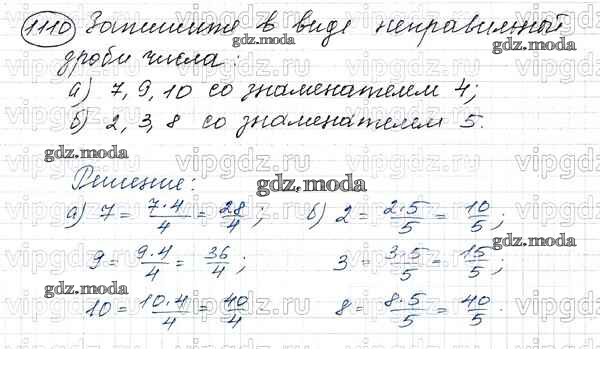 1110 Запишите в виде неправильной
дроби числа:
а) 7, 9, 10 со знаменателем 4;
б) 2, 3, 8 со знаменателем 5.
Решение:
а) 7 = 7·4/4 = 28/4; б) 2 = 2·5/5 = 10/5;
9 = 9·4/4 = 36/4; 3 = 3·5/5 = 15/5;
10 = 10·4/4 = 40/4 8 = 8·5/5 = 40/5.
gdz.moda
vipgdz.ru